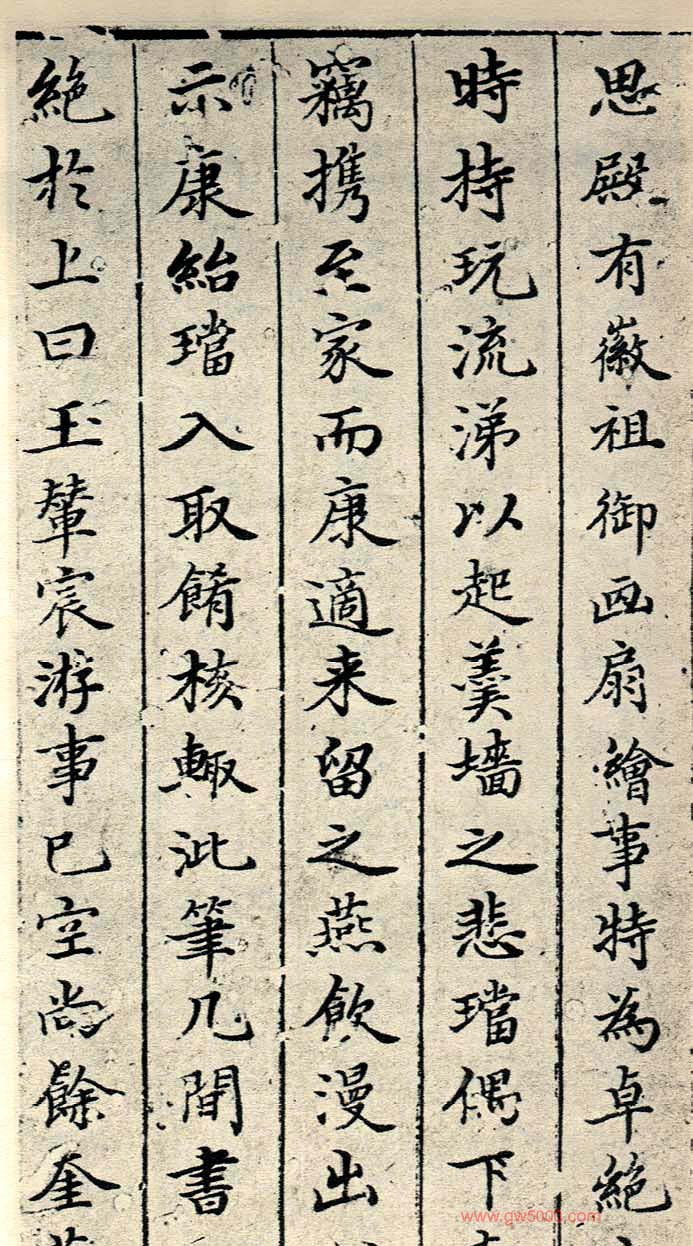 思殿有徽祖御画扇繪事特為卓絶
時持玩流涕以起羹墻之悲璫偶下
竊携至家而康適来留之燕飲漫出
示康紿璫入取餚核輙泚筆几間書
絶於上曰玉輦宸游事已空尚餘奎
www.gw5000.com